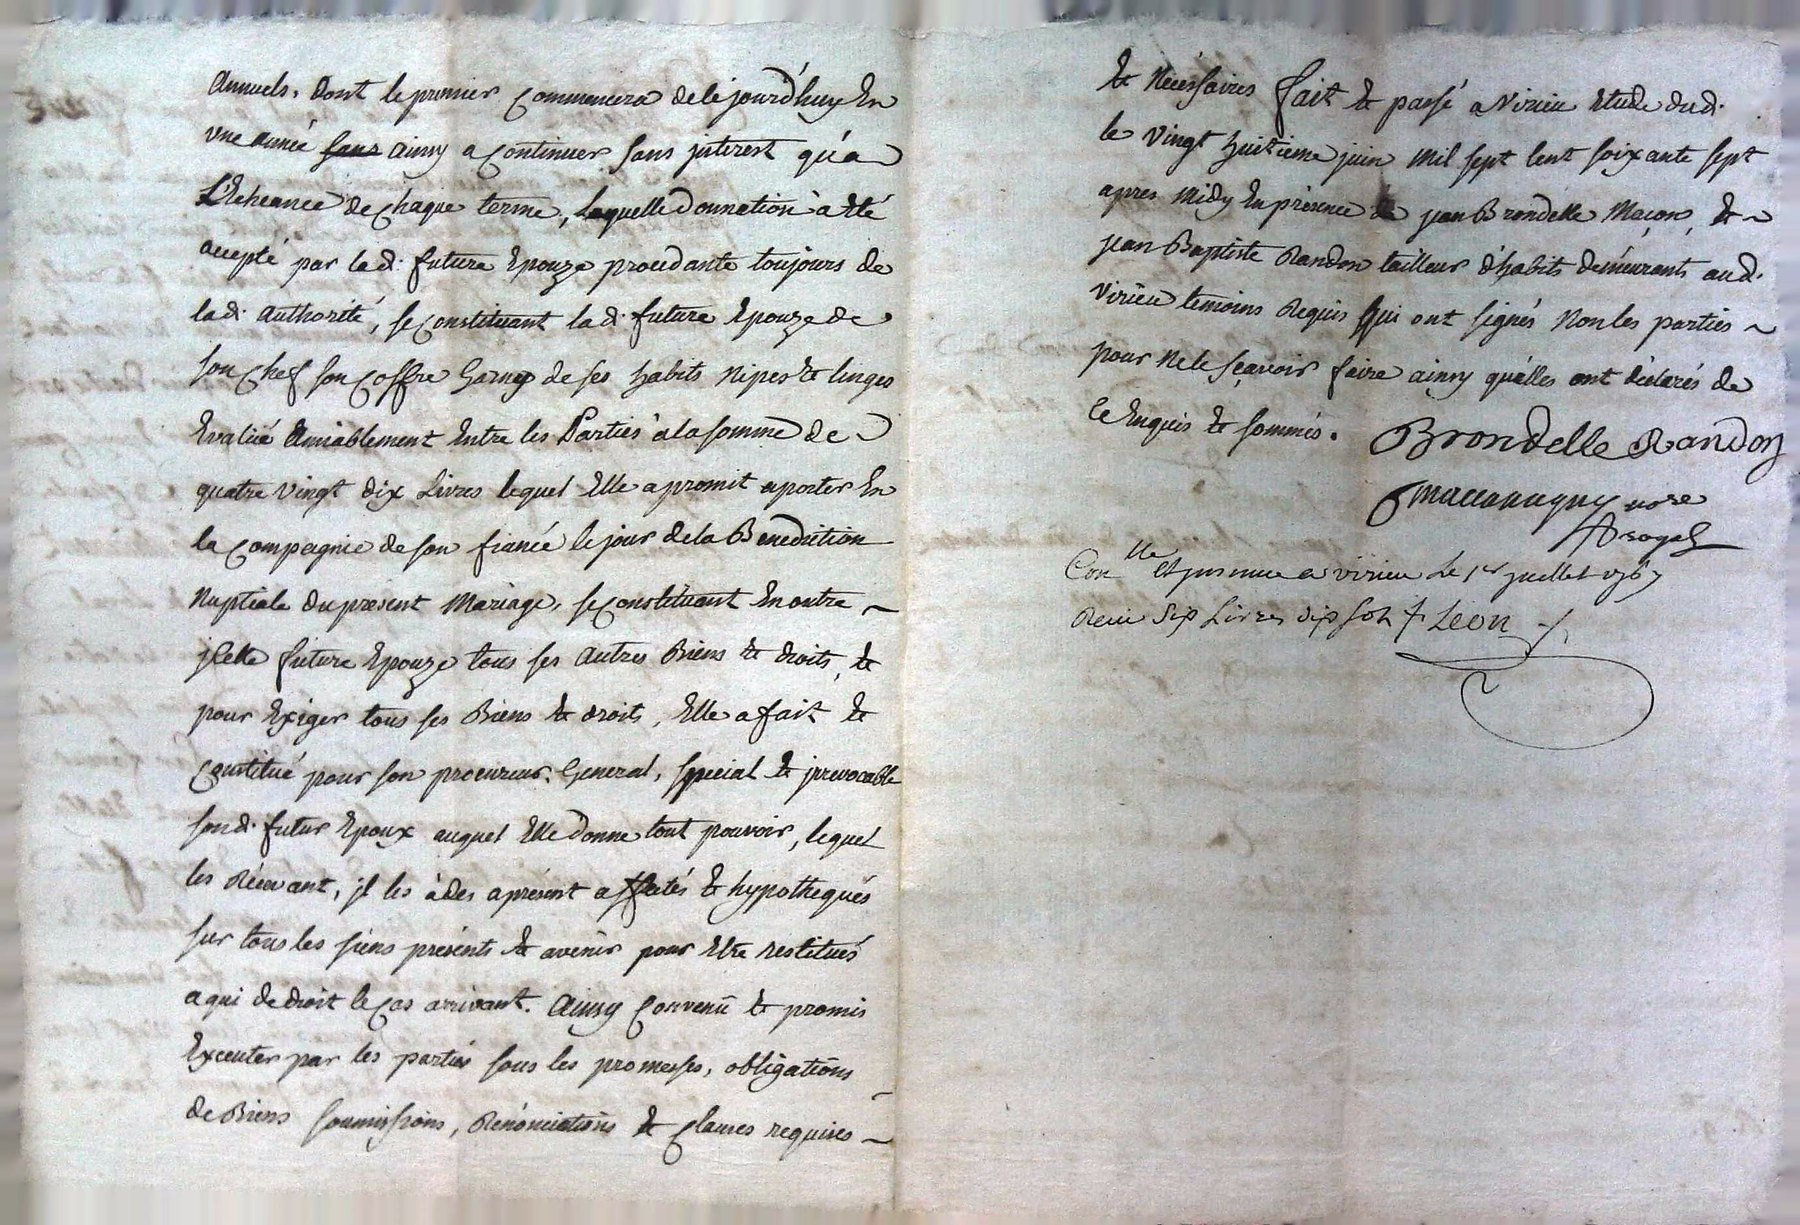 annuels. dont le premier commencera de cejourd'huy En
vne année sans ainsy a continuer sans jnterest qu'a
L'Echeance de chaque terme, laquelle donnation à Eté
accepté par lad. future Epouze procedante toujours de
lad. authorité, se constituant lad. future Epouze de
son chef son coffre Garny de ses habits nipes et linges
Evalüé amiablement Entre les Parties à la somme de
quatre vingt dix Livres lequel Elle a promit aporter En
la compagnie de son fiancé le jour de la Benediction
Nuptiale du present Mariage, se constituant En outre
jcelle future Epouze tous ses autres Biens & droits, &
pour Exiger tous ses Biens & droits, Elle a fait &
constitué pour son procureur General, special & jrrevocable
sond. futur Epoux auquel Elle donne tout pouvoir, lequel
les Récevant, jl les à des aprésent affectés & hypothequés
sur tous les siens présents & avenir pour Etre restitués
a qui de droit le cas arrivant. ainsy convenû & promis
Executer par les parties sous les promesses, obligations
de Biens soumissions, Rénonciations & clauses requises
& Nécéssaires fait & passé a Virieu Etude dud.
le Vingt huitieme juin Mil sept Cent soixante sept
apres Midy En présence de jean Brondelle Maçon, &
jean Baptiste Randon tailleur d'habits demeurants aud.
Virieu temoins Requis qui ont signés Non les parties
pour Ne le sçavoir faire ainsy qu'elles ont déclarés de
ce Enquis & sommés. Brondelle Randon
nore
Conlle Et jnsinué a virieu Le 1er juillet 1767
Reçu six Livres dix sols Leon